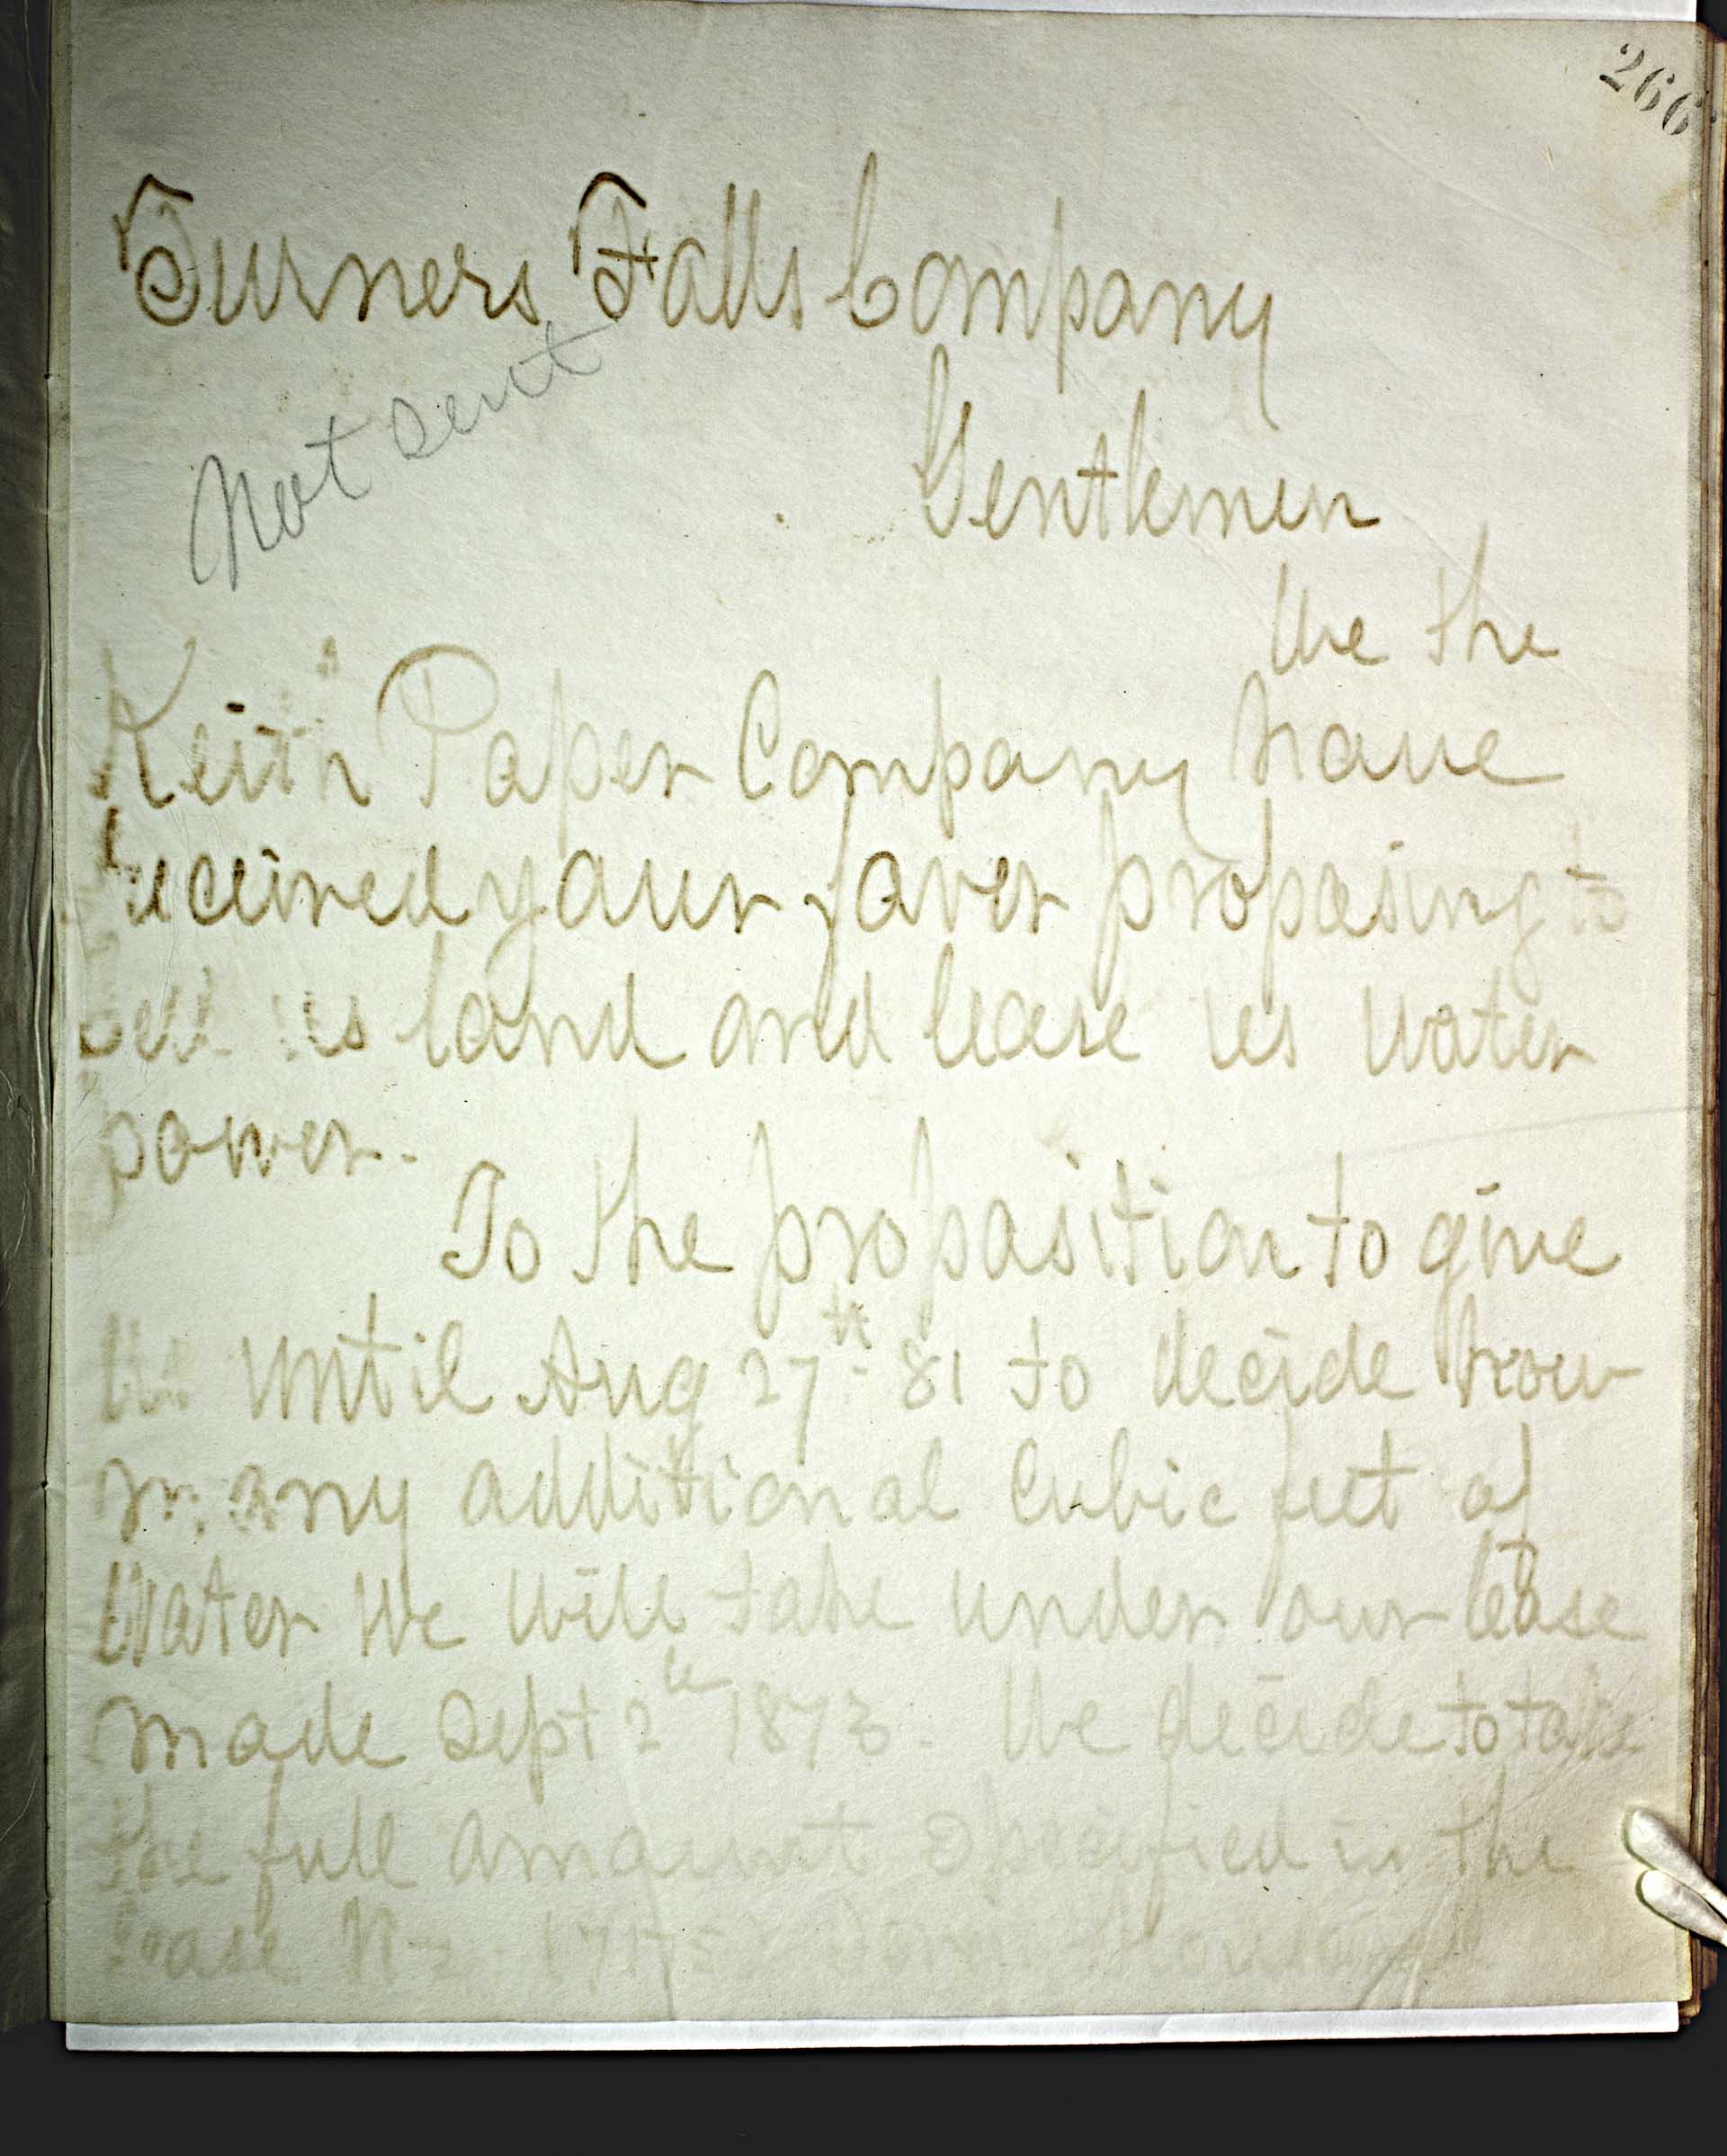 266
Turners Falls Company
Not sent
Gentlemen
We the
Keith Paper Company have
received your favor proposing to
sell us land and lease us water
power.
To the proposition to give
us until Aug 27th 81 to decide how
many additional cubic feet of
Water We Will take under our lease
made Sept 2 1873. We decide to take
the full amount specified in the
lease